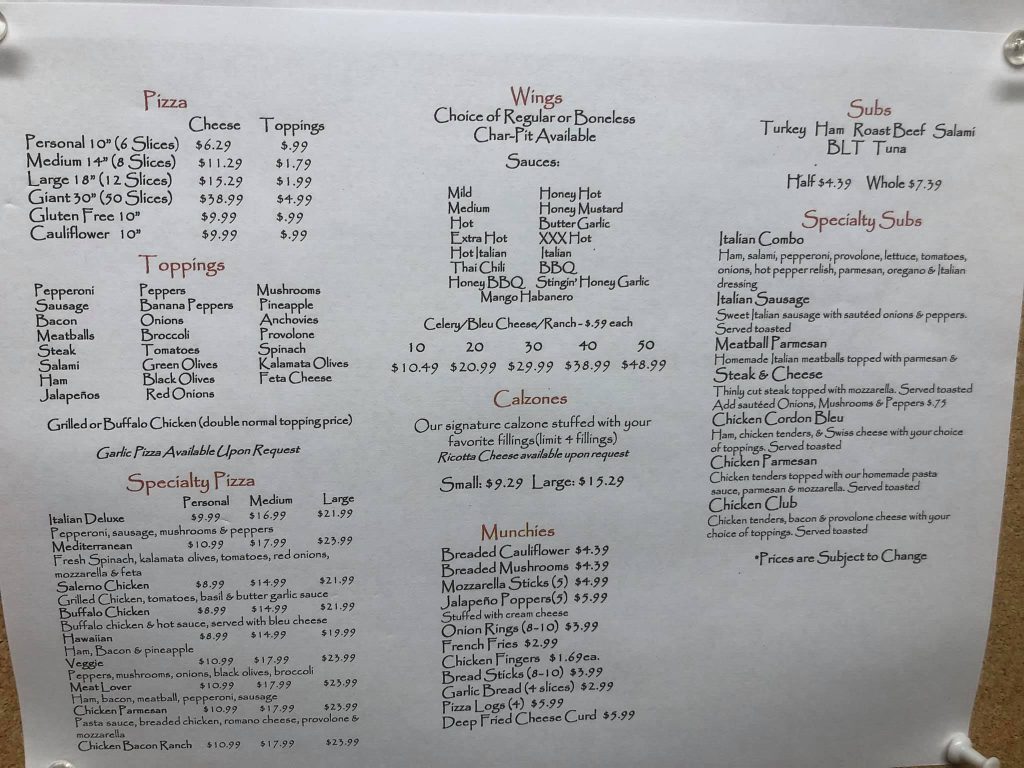 Pizza
Cheese Toppings
Personal 10" (6 Slices) $6.29 $.99
Medium 14" (8 Slices) $11.29 $1.79
Large 18" (12 Slices) $15.29 $1.99
Giant 30" (50 Slices) $38.99 $4.99
Gluten Free 10" $9.99 $.99
Cauliflower 10" $9.99 $.99
Toppings
Pepperoni Peppers Mushrooms
Sausage Banana Peppers Pineapple
Bacon Onions Anchovies
Meatballs Broccoli Provolone
Steak Tomatoes Spinach
Salami Green Olives Kalamata Olives
Ham Black Olives Feta Cheese
Jalapeños Red Onions
Grilled or Buffalo Chicken (double normal topping price)
Garlic Pizza Available Upon Request
Specialty Pizza
Personal Medium Large
Italian Deluxe $9.99 $16.99 $21.99
Pepperoni, sausage, mushrooms & peppers
Mediterranean $10.99 $17.99 $23.99
Fresh Spinach, kalamata olives, tomatoes, red onions,
mozzarella & feta
Salerno Chicken $8.99 $14.99 $21.99
Grilled Chicken, tomatoes, basil & butter garlic sauce
Buffalo Chicken $8.99 $14.99 $21.99
Buffalo chicken & hot sauce, served with bleu cheese
Hawaiian $8.99 $14.99 $19.99
Ham, Bacon & pineapple
Veggie $10.99 $17.99 $23.99
Peppers, mushrooms, onions, black olives, broccoli
Meat Lover $10.99 $17.99 $23.99
Ham, bacon, meatball, pepperoni, sausage
Chicken Parmesan $10.99 $17.99 $23.99
Pasta sauce, breaded chicken, romano cheese, provolone &
mozzarella
Chicken Bacon Ranch $10.99 $17.99 $23.99
Wings
Choice of Regular or Boneless
Char-Pit Available
Sauces:
Mild Honey Hot
Medium Honey Mustard
Hot Butter Garlic
Extra Hot XXX Hot
Hot Italian Italian
Thai Chili BBQ
Honey BBQ Stingin' Honey Garlic
Mango Habanero
Celery/Bleu Cheese/Ranch - $.59 each
10 20 30 40 50
$10.49 $20.99 $29.99 $38.99 $48.99
Calzones
Our signature calzone stuffed with your
favorite fillings(limit 4 fillings)
Ricotta Cheese available upon request
Small: $9.29 Large: $15.29
Munchies
Breaded Cauliflower $4.39
Breaded Mushrooms $4.39
Mozzarella Sticks (5) $4.99
Jalapeño Poppers(5) $5.99
Stuffed with cream cheese
Onion Rings (8-10) $3.99
French Fries $2.99
Chicken Fingers $1.69ea.
Bread Sticks (8-10) $3.99
Garlic Bread (4 slices) $2.99
Pizza Logs (4) $5.99
Deep Fried Cheese Curd $5.99
Subs
Turkey Ham Roast Beef Salami
BLT Tuna
Half $4.39 Whole $7.39
Specialty Subs
Italian Combo
Ham, salami, pepperoni, provolone, lettuce, tomatoes,
onions, hot pepper relish, parmesan, oregano & Italian
dressing
Italian Sausage
Sweet Italian sausage with sautéed onions & peppers.
Served toasted
Meatball Parmesan
Homemade Italian meatballs topped with parmesan &
Steak & Cheese
Thinly cut steak topped with mozzarella. Served toasted
Add sautéed Onions, Mushrooms & Peppers $.75
Chicken Cordon Bleu
Ham, chicken tenders, & Swiss cheese with your choice
of toppings. Served toasted
Chicken Parmesan
Chicken tenders topped with our homemade pasta
sauce, parmesan & mozzarella. Served toasted
Chicken Club
Chicken tenders, bacon & provolone cheese with your
choice of toppings. Served toasted
*Prices are Subject to Change